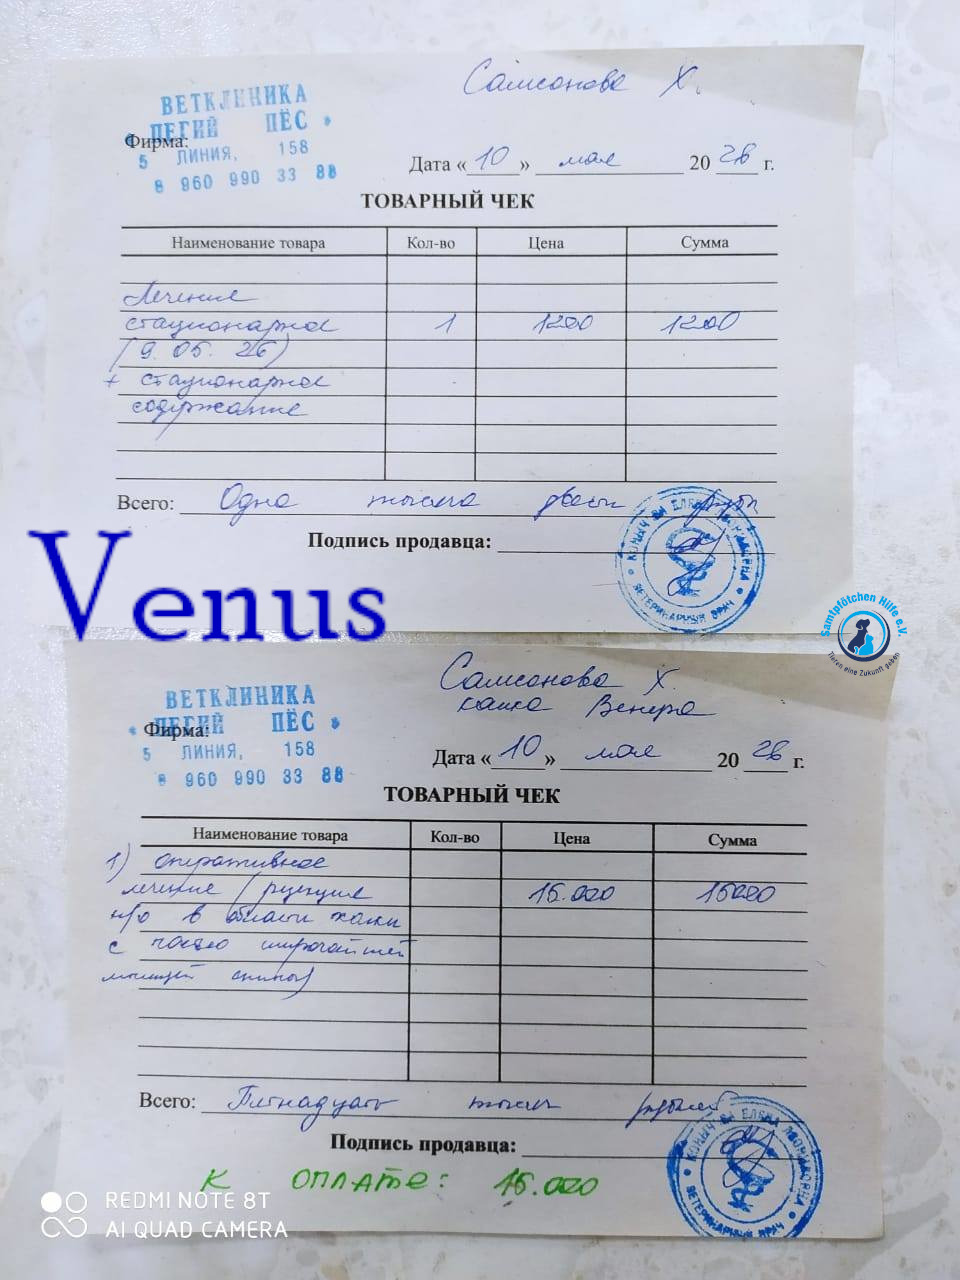 Самсонова Х.
ВЕТКЛИНИКА
« ПЕГИЙ ПЁС »
Фирма:
5 ЛИНИЯ, 158
8 960 990 33 88
Дата «10» мая 2026 г.
ТОВАРНЫЙ ЧЕК
Наименование товара Кол-во Цена Сумма
Лечение
стационарное 1 1200 1200
(9.05.26)
+ стационарное
содержание
Всего: Одна тысяча двести
Подпись продавца:
ВЕТЕРИНАРНЫЙ ВРАЧ
Venus
Samtpfötchen Hilfe e.V.
Tieren eine Zukunft geben
Самсонова Х.
кошка Венера
ВЕТКЛИНИКА
« ПЕГИЙ ПЁС »
Фирма:
5 ЛИНИЯ, 158
8 960 990 33 88
Дата «10» мая 2026 г.
ТОВАРНЫЙ ЧЕК
Наименование товара Кол-во Цена Сумма
1) оперативное
лечение ( 15.000 15000
н/о в области холки
с широчайшей
мышцей спины)
Всего: Пятнадцать тысяч рублей
Подпись продавца:
ВЕТЕРИНАРНЫЙ ВРАЧ
К ОПЛАТЕ: 15.000
REDMI NOTE 8T
AI QUAD CAMERA